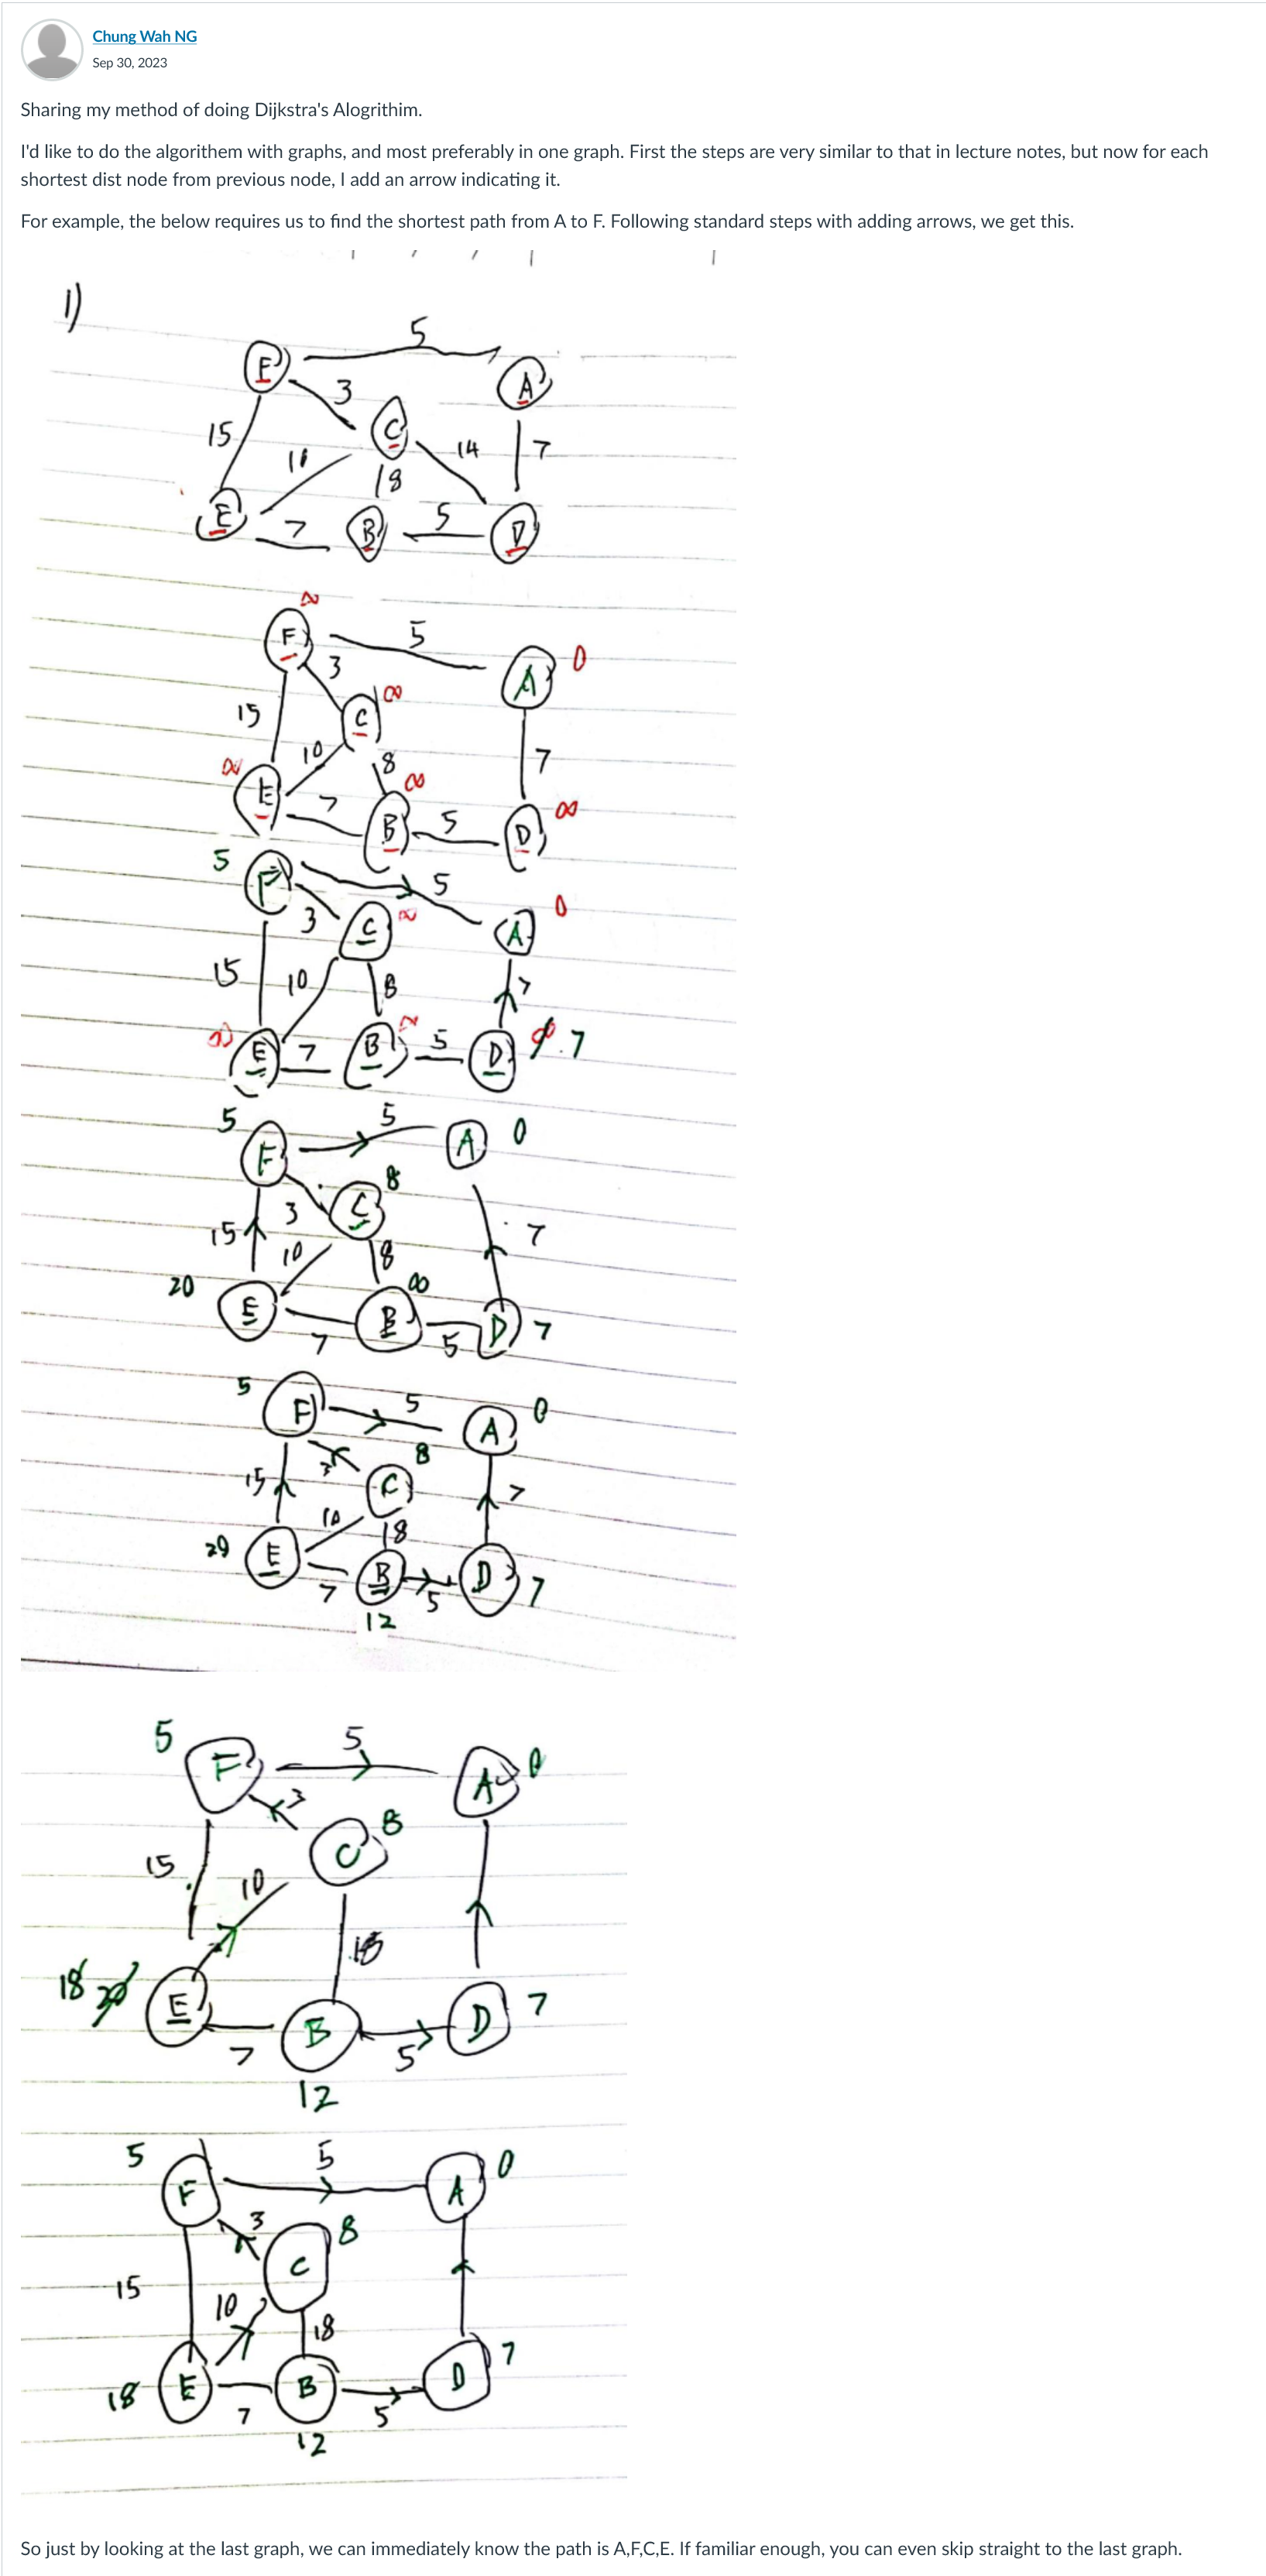 Chung Wah NG
Sep 30, 2023
Sharing my method of doing Dijkstra's Alogrithim.
I'd like to do the algorithem with graphs, and most preferably in one graph. First the steps are very similar to that in lecture notes, but now for each
shortest dist node from previous node, I add an arrow indicating it.
For example, the below requires us to find the shortest path from A to F. Following standard steps with adding arrows, we get this.
1)
5
F A
3
C
15 10 14 7
8
E 7 B 5 D
∞
F 5 A 0
3
15 C ∞
10 8 7
∞ E 7 B ∞ 5 D ∞
5 F 5 A 0
3 C ∞
15 10 8 7
∞ E 7 B ∞ 5 D ∞ 7
5 F 5 A 0
3 C 8
15 10 8 7
20 E 7 B ∞ 5 D 7
5 F 5 A 0
3 C 8
15 10 8 7
E 7 B 5 D 7
12
5 F 5 A 0
3 C 8
15 10
18 20 E 7 B 5 D 7
12
5 F 5 A 0
3 C 8
15 10 8
18 E 7 B 5 D 7
12
So just by looking at the last graph, we can immediately know the path is A,F,C,E. If familiar enough, you can even skip straight to the last graph.